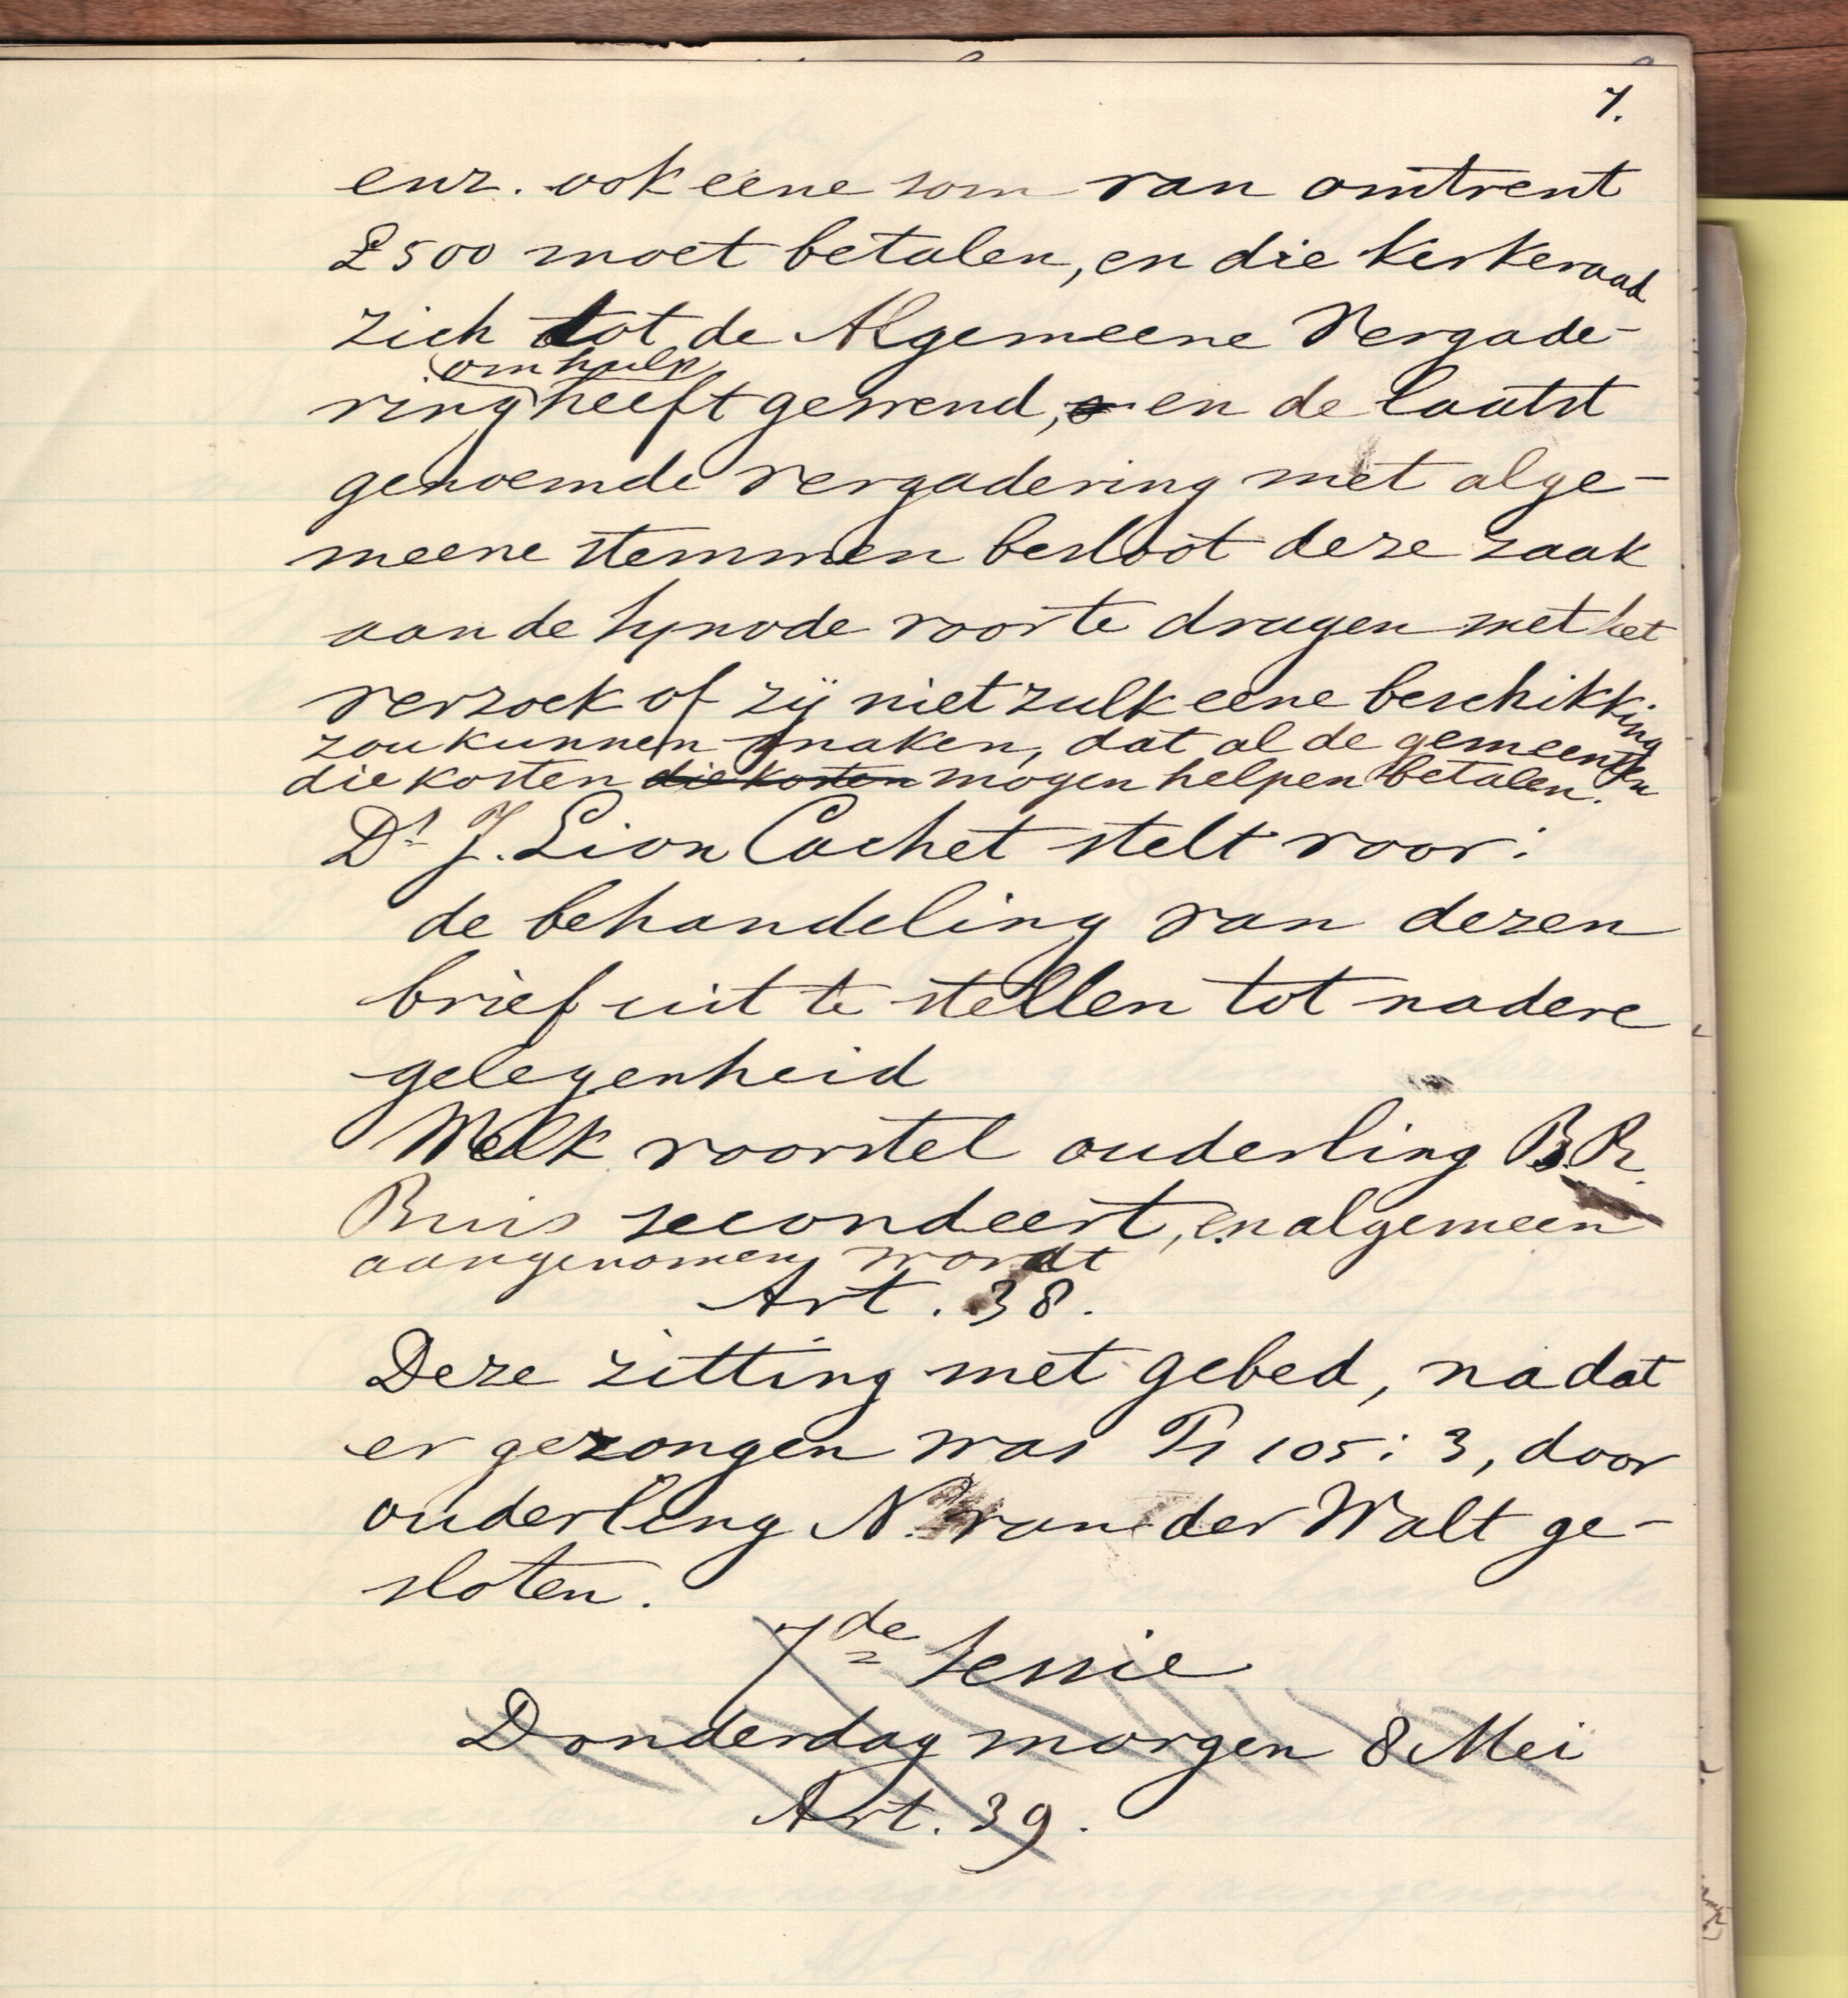 7.
enz. ook eene som van omtrent
£500 moet betalen, en die Kerkeraad
zich tot de Algemeene Vergade-
om hulp
ring heeft gewend, en de laatst
genoemde vergadering met alge-
meene stemmen besloot deze zaak
aan de Synode voor te dragen met het
verzoek of zij niet zulk eene beschikking
zou kunnen maken, dat al de gemeenten
die kosten die kosten mogen helpen betalen.
Ds J. Lion Cachet stelt voor:
de behandeling van dezen
brief uit te stellen tot nadere
gelegenheid
Welk voorstel ouderling B.R.
Buis secondeert, en algemeen
aangenomen wordt
Art. 38.
Deze zitting met gebed, nadat
er gezongen was Ps 105: 3, door
ouderling N. van der Walt ge-
sloten.
7de Sessie
Donderdag morgen 8 Mei
Art. 39.